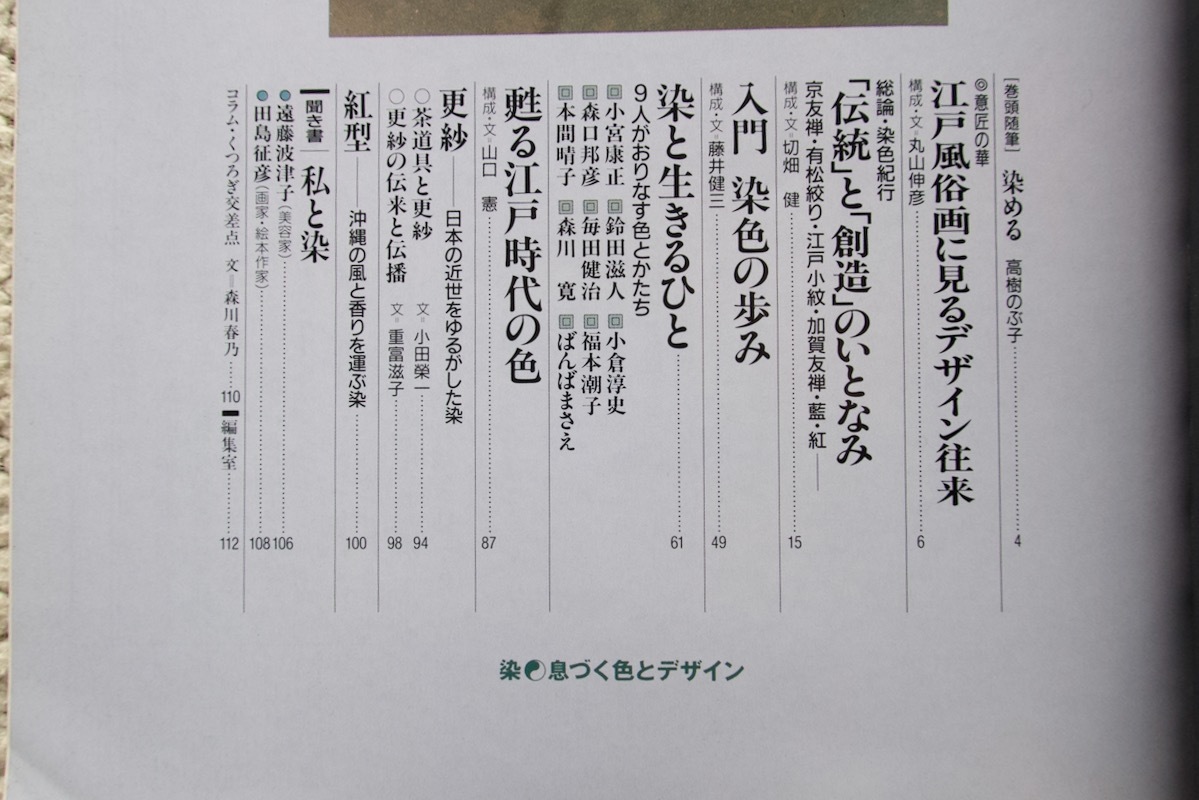 ［巻頭随筆］ 染める 高樹のぶ子 4
◎意匠の華
江戸風俗画に見るデザイン往来
構成・文=丸山伸彦 6
総論・染色紀行
「伝統」と「創造」のいとなみ
京友禅・有松絞り・江戸小紋・加賀友禅・藍・紅──
構成・文=切畑 健 15
入門 染色の歩み
構成・文=藤井健三 49
染と生きるひと 61
9人がおりなす色とかたち
小宮康正 鈴田滋人 小倉淳史
森口邦彦 毎田健治 福本潮子
本間晴子 森川 寛 ばんばまさえ
甦る江戸時代の色
構成・文=山口 憲 87
更紗──日本の近世をゆるがした染
○茶道具と更紗 文=小田榮一 94
○更紗の伝来と伝播 文=重富滋子 98
紅型──沖縄の風と香りを運ぶ染 100
聞き書 私と染
●遠藤波津子（美容家） 106
●田島征彦（画家・絵本作家） 108
コラム・くつろぎ交差点 文=森川春乃 110 編集室 112
染 息づく色とデザイン